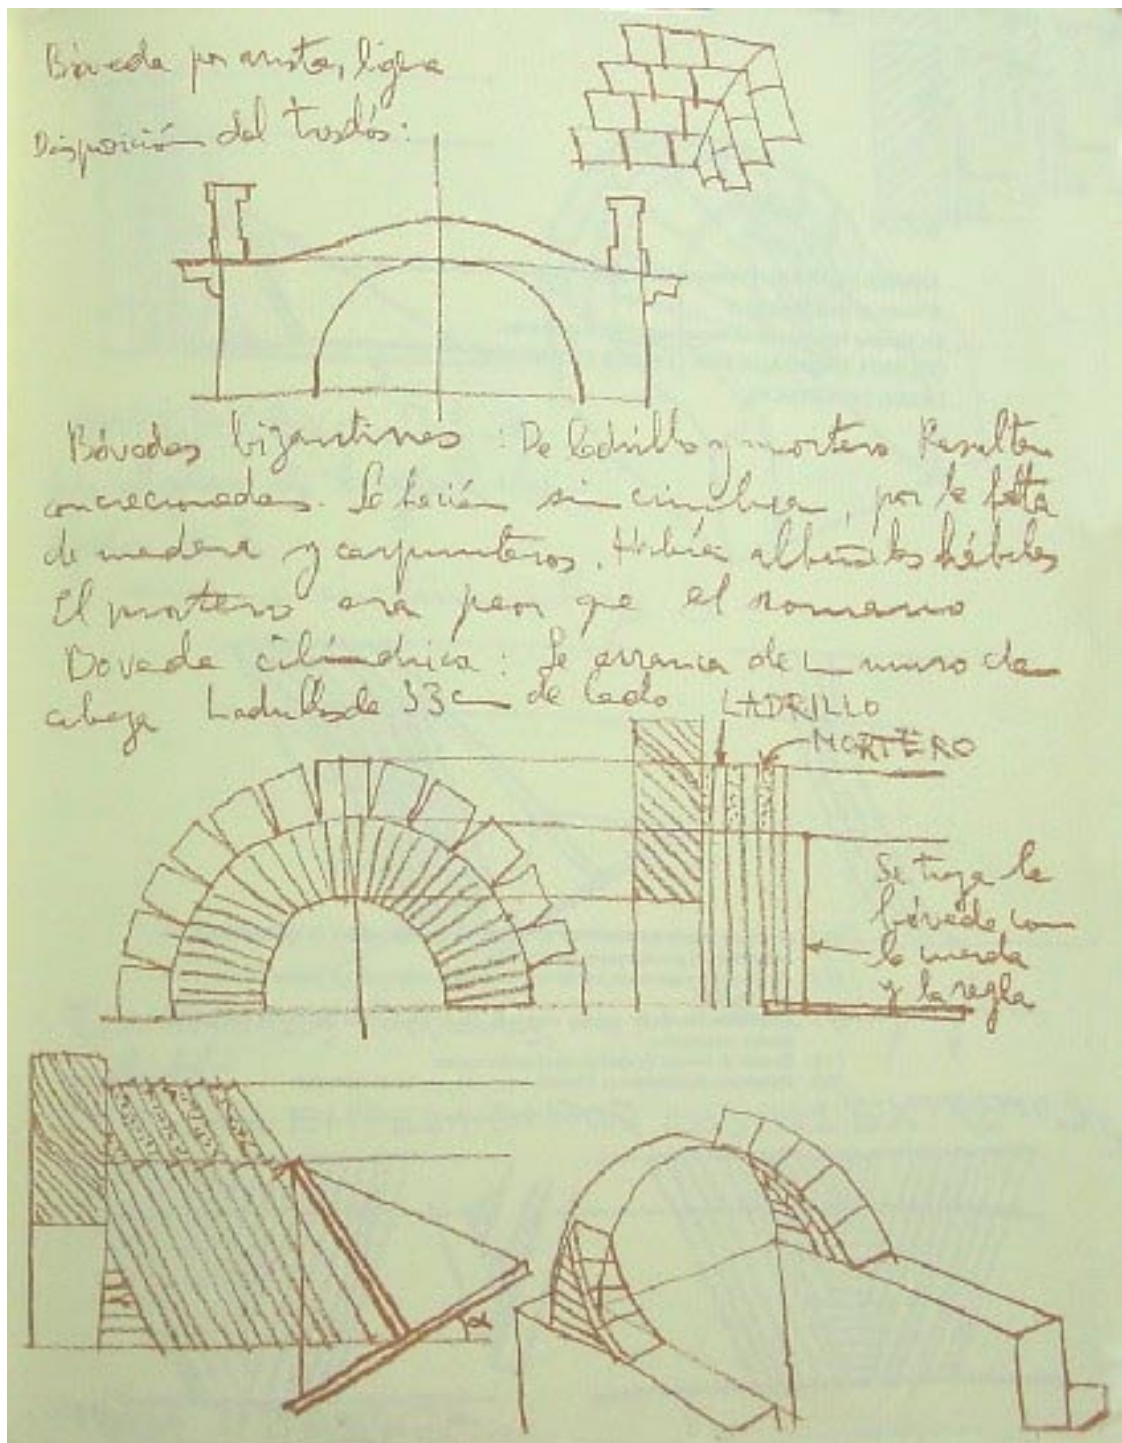 Bóveda por arista, ligera
Disposición del trasdós:
Bóvedas bizantinas : De ladrillo y mortero Resultan
concrecionadas. Se hacían sin cimbra, por la falta
de madera y carpinteros. Había albañiles hábiles
El mortero era peor que el romano
Bóveda cilíndrica : Se arranca de un muro de
cabeza Ladrillos de 33 cm de lado
LADRILLO
MORTERO
Se traza la
bóveda con
la cuerda
y la regla
α